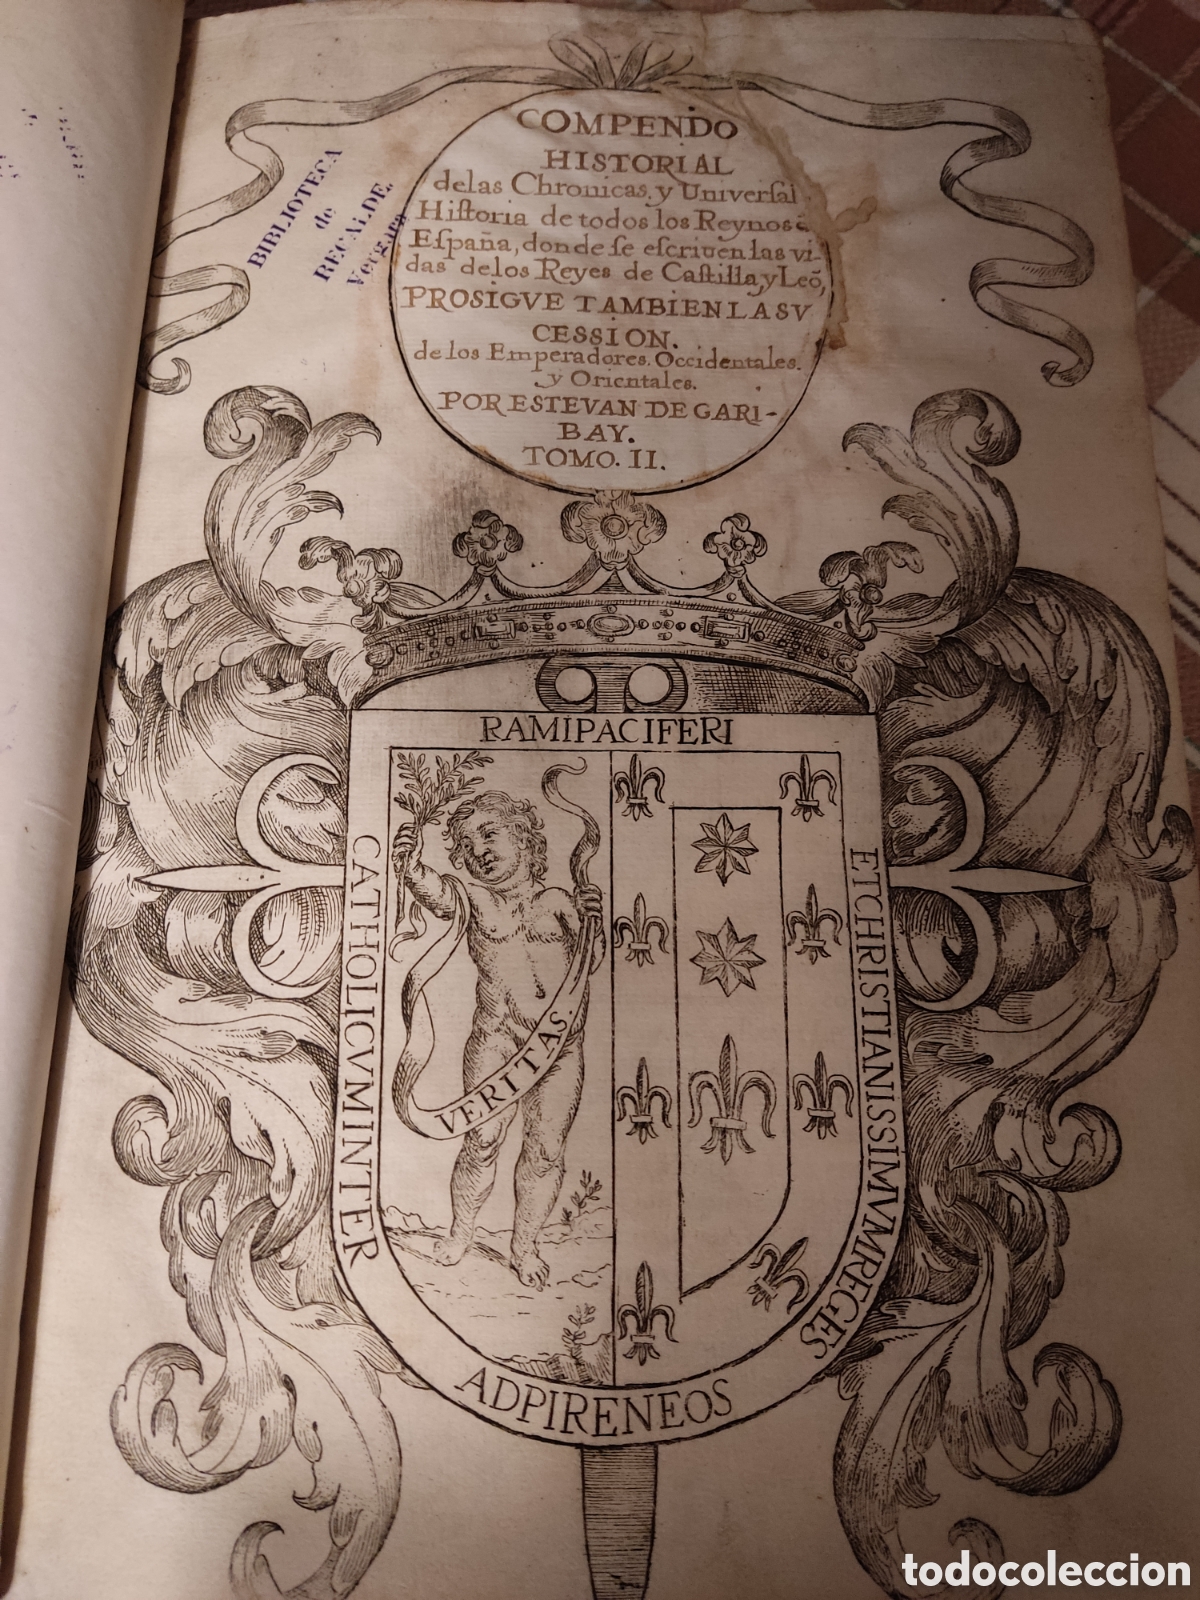 COMPENDO
HISTORIAL
delas Chronicas, y Univerſal
Hiſtoria de todos los Reynos đ
Eſpaña, donde ſe eſcriven las vi-
das delos Reyes de Caſtilla, y Leõ,
PROSIGVE TAMBIEN LA SV
CESSION.
de los Emperadores. Occidentales.
y Orientales.
POR ESTEVAN DE GARI-
BAY.
TOMO. II.
BIBLIOTECA
de
RECALDE.
Vergara
RAMIPACIFERI
CATHOLICVMINTER
ETCHRISTIANISSIMVMREGES
ADPIRENEOS
VERITAS.
todocoleccion